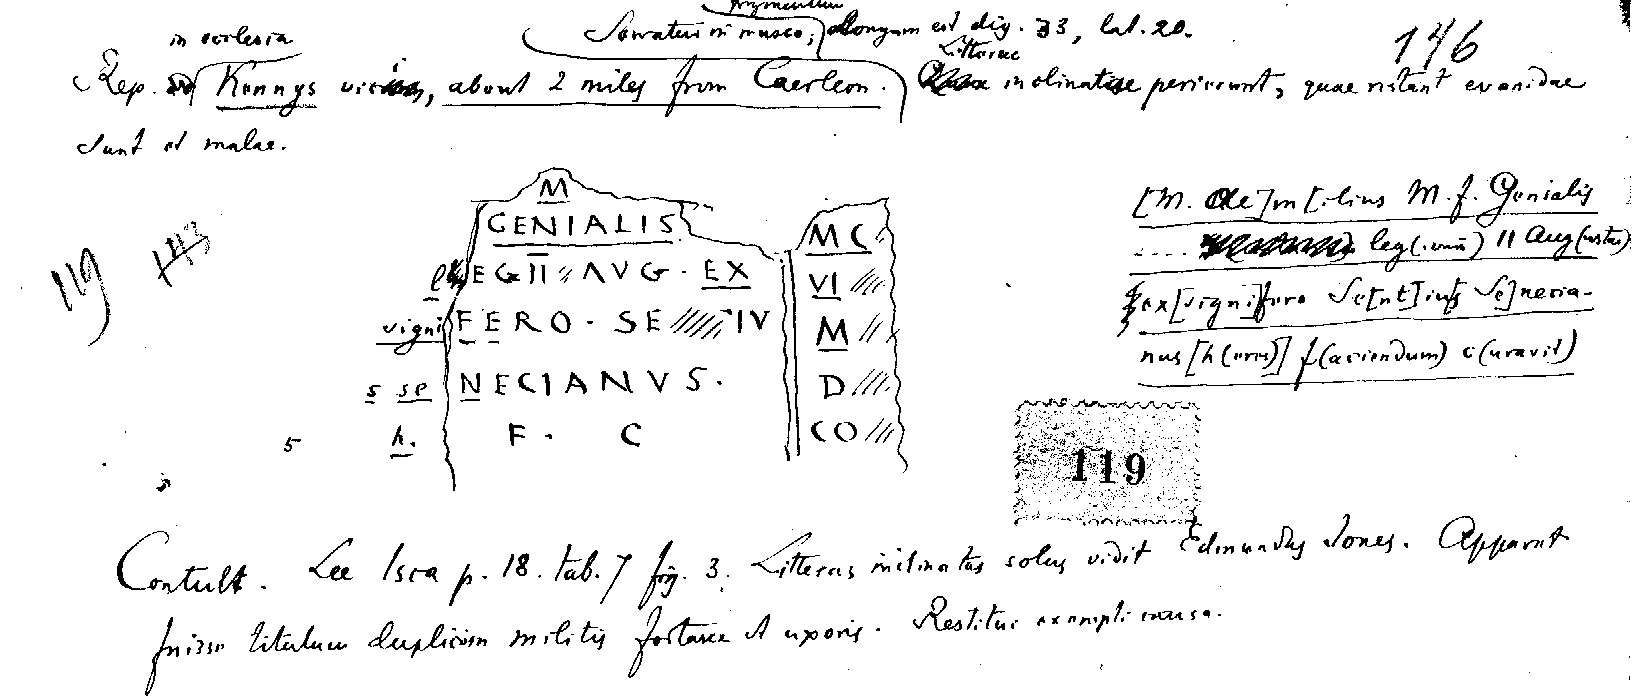 fragmentum
Servatur in museo; longum est dig. 33, lat. 20.
146
in ecclesia
Litterae
Rep. Kemys about 2 miles from Caerleon. inclinatae perierunt, quae restant evanidae
sunt et malae.
M
GENIALIS
MC
l EG II AVG · EX
VI
signi FERO · SE IV
M
s se NECIANVS ·
D
5 h. F · C
CO
[M. Ae]m[ilius M. f. Genialis
.... leg(ionis) II Aug(ustae)
ex [signi]fero Se[nt]ius Se]necia-
nus [h(eres)] f(aciendum) c(uravit)
119
143
119
Contuli. Lee Isca p. 18. tab. 7 fig. 3. Litteras inclinatas solus vidit Edmundus Jones. Apparet
fuisse titulum duplicem militis fortasse et uxoris. Restitui exempli causa.